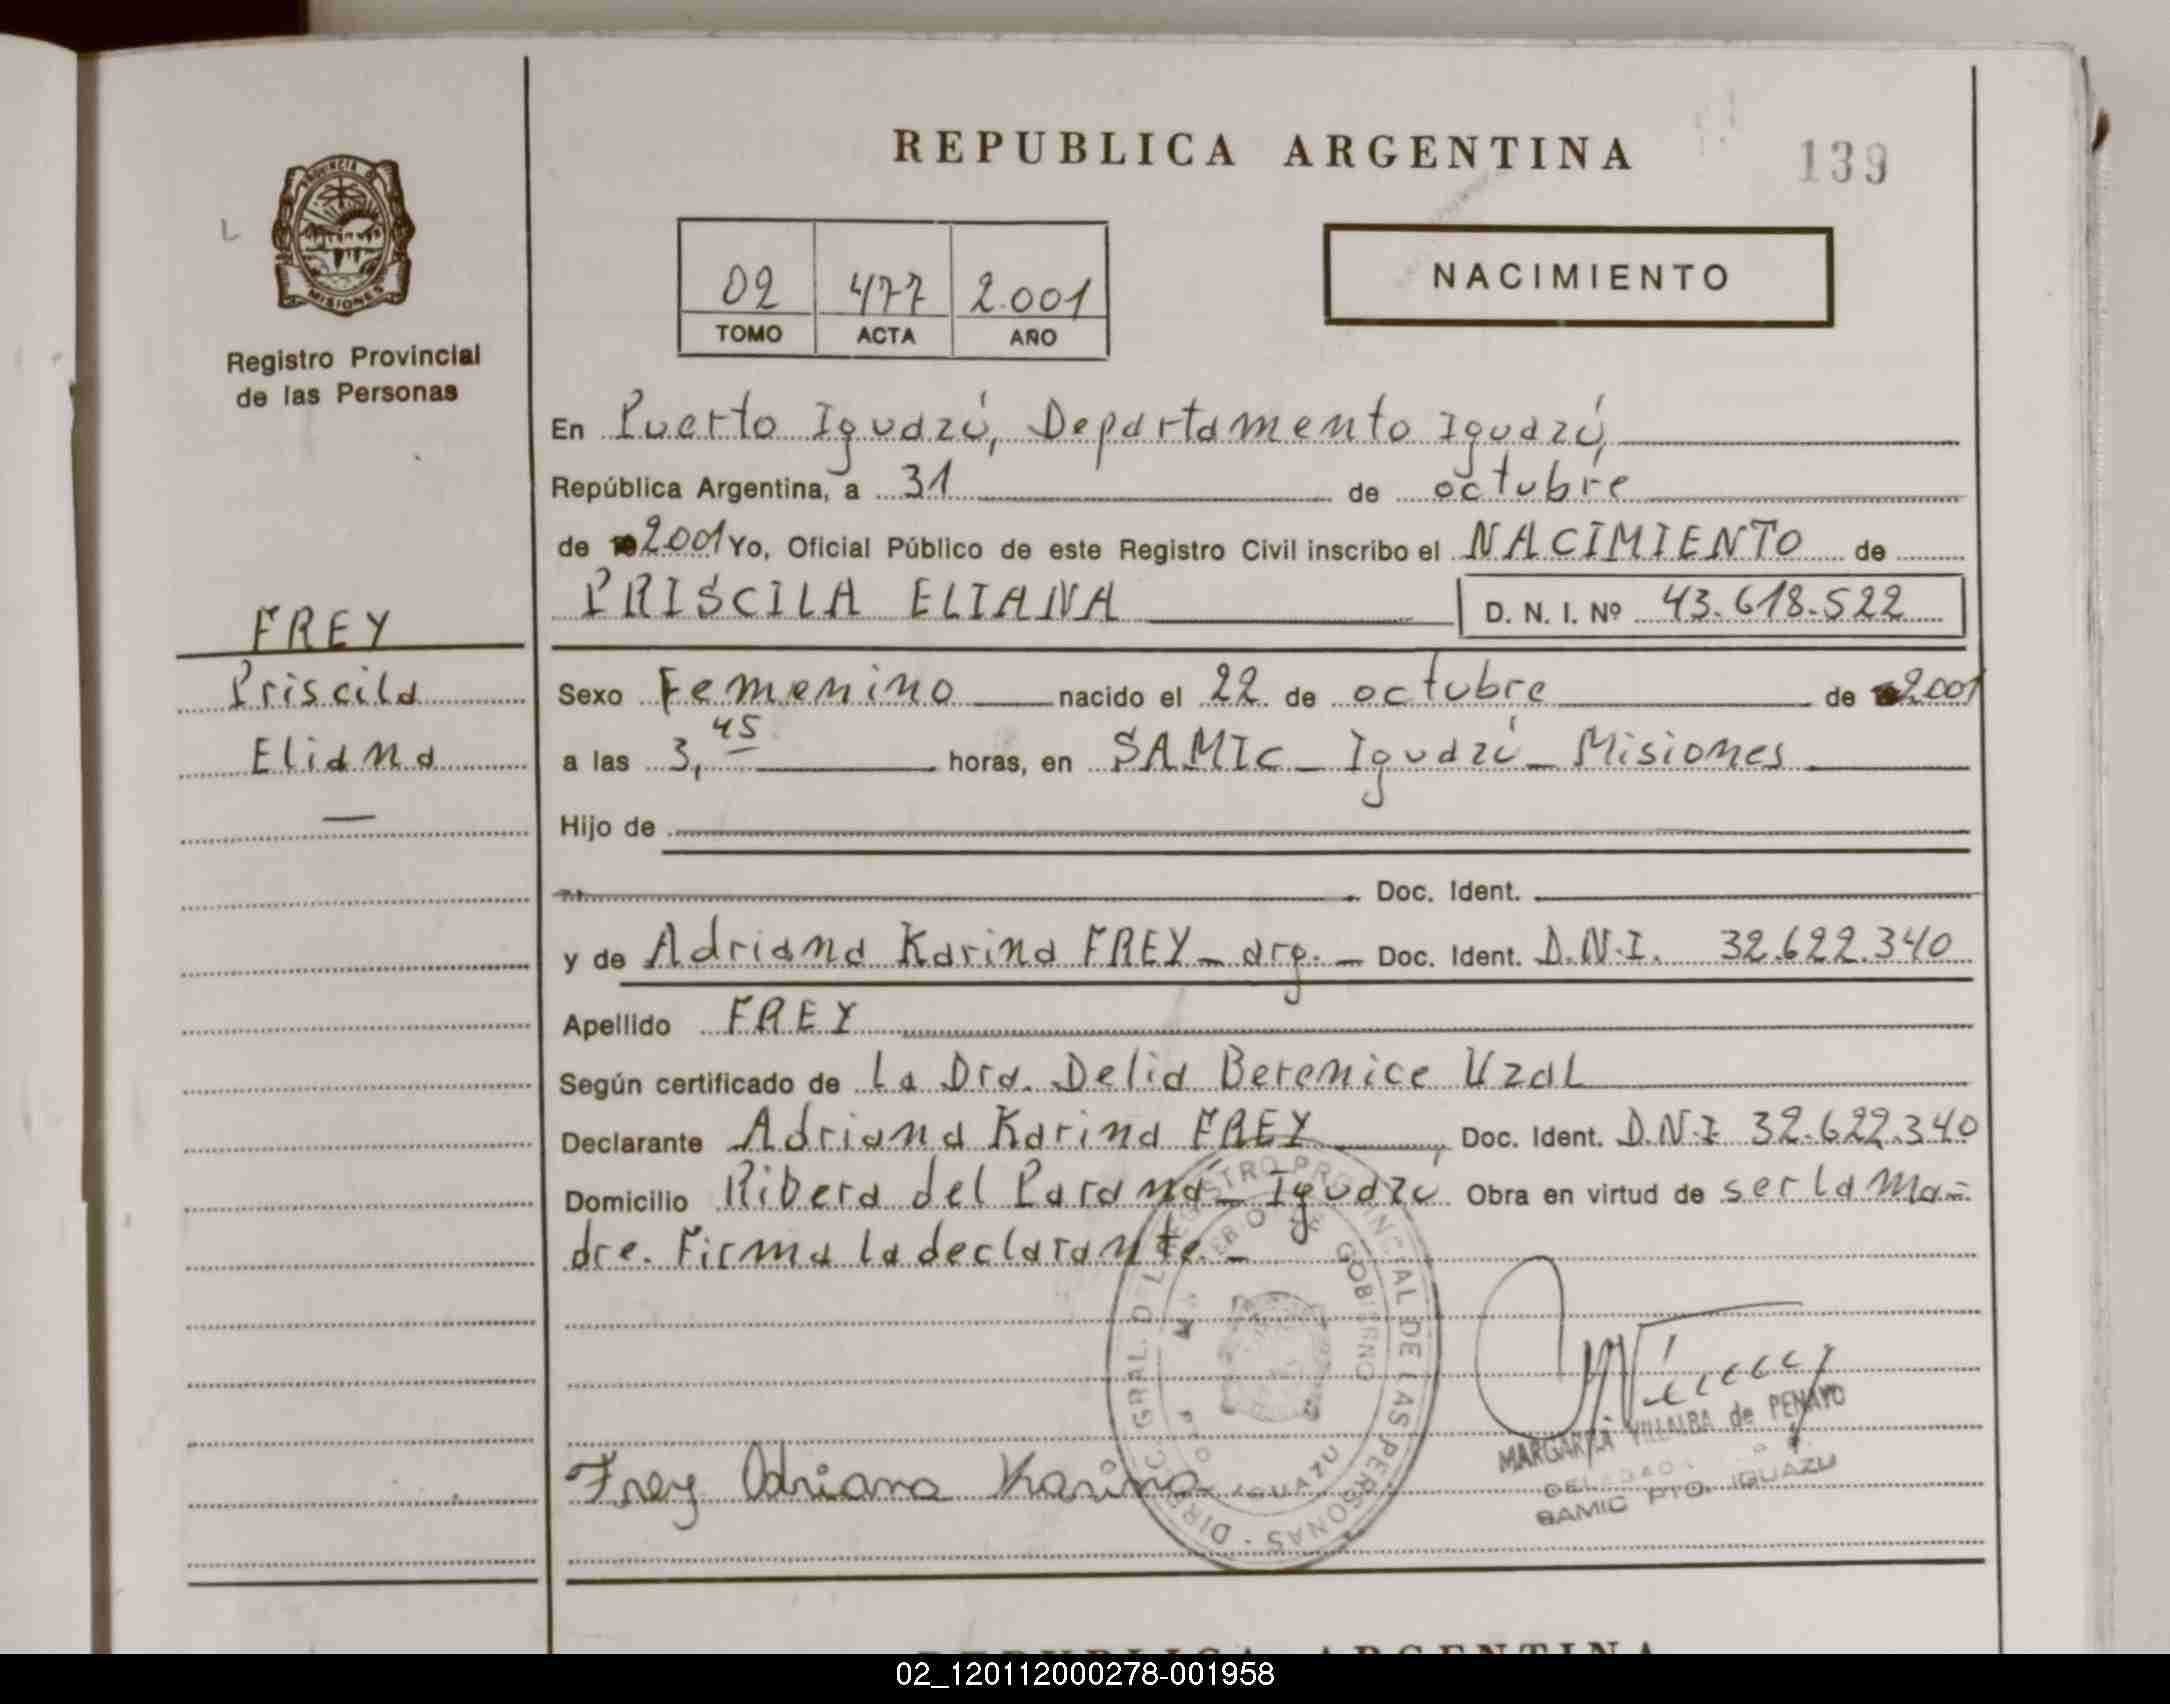 REPUBLICA ARGENTINA
139
PROVINCIA DE
MISIONES
Registro Provincial
de las Personas
02 477 2.001
TOMO ACTA AÑO
NACIMIENTO
En Puerto Iguazú, Departamento Iguazú,
República Argentina, a 31 de octubre
de 2001 Yo, Oficial Público de este Registro Civil inscribo el NACIMIENTO de
PRISCILA ELIANA D. N. I. Nº 43.618.522
FREY
Priscila
Eliana
Sexo Femenino nacido el 22 de octubre de 2001
a las 3,45 horas, en SAMIC - Iguazú - Misiones
Hijo de
Doc. Ident.
y de Adriana Karina FREY - arg. - Doc. Ident. D.N.I. 32.622.340
Apellido FREY
Según certificado de La Dra. Delia Berenice Uzal
Declarante Adriana Karina FREY, Doc. Ident. D.N.I 32.622.340
Domicilio Ribera del Paraná - Iguazú Obra en virtud de ser la ma=
dre. Firma la declarante. -
DIRECC GRAL. DEL REGISTRO PROVINCIAL DE LAS PERSONAS
GOBIERNO
IGUAZU
MARGARITA VILLALBA de PENAYO
DELEGADA
SAMIC PTO. IGUAZU
Frey Adriana Karina
REPUBLICA ARGENTINA
02_120112000278-001958